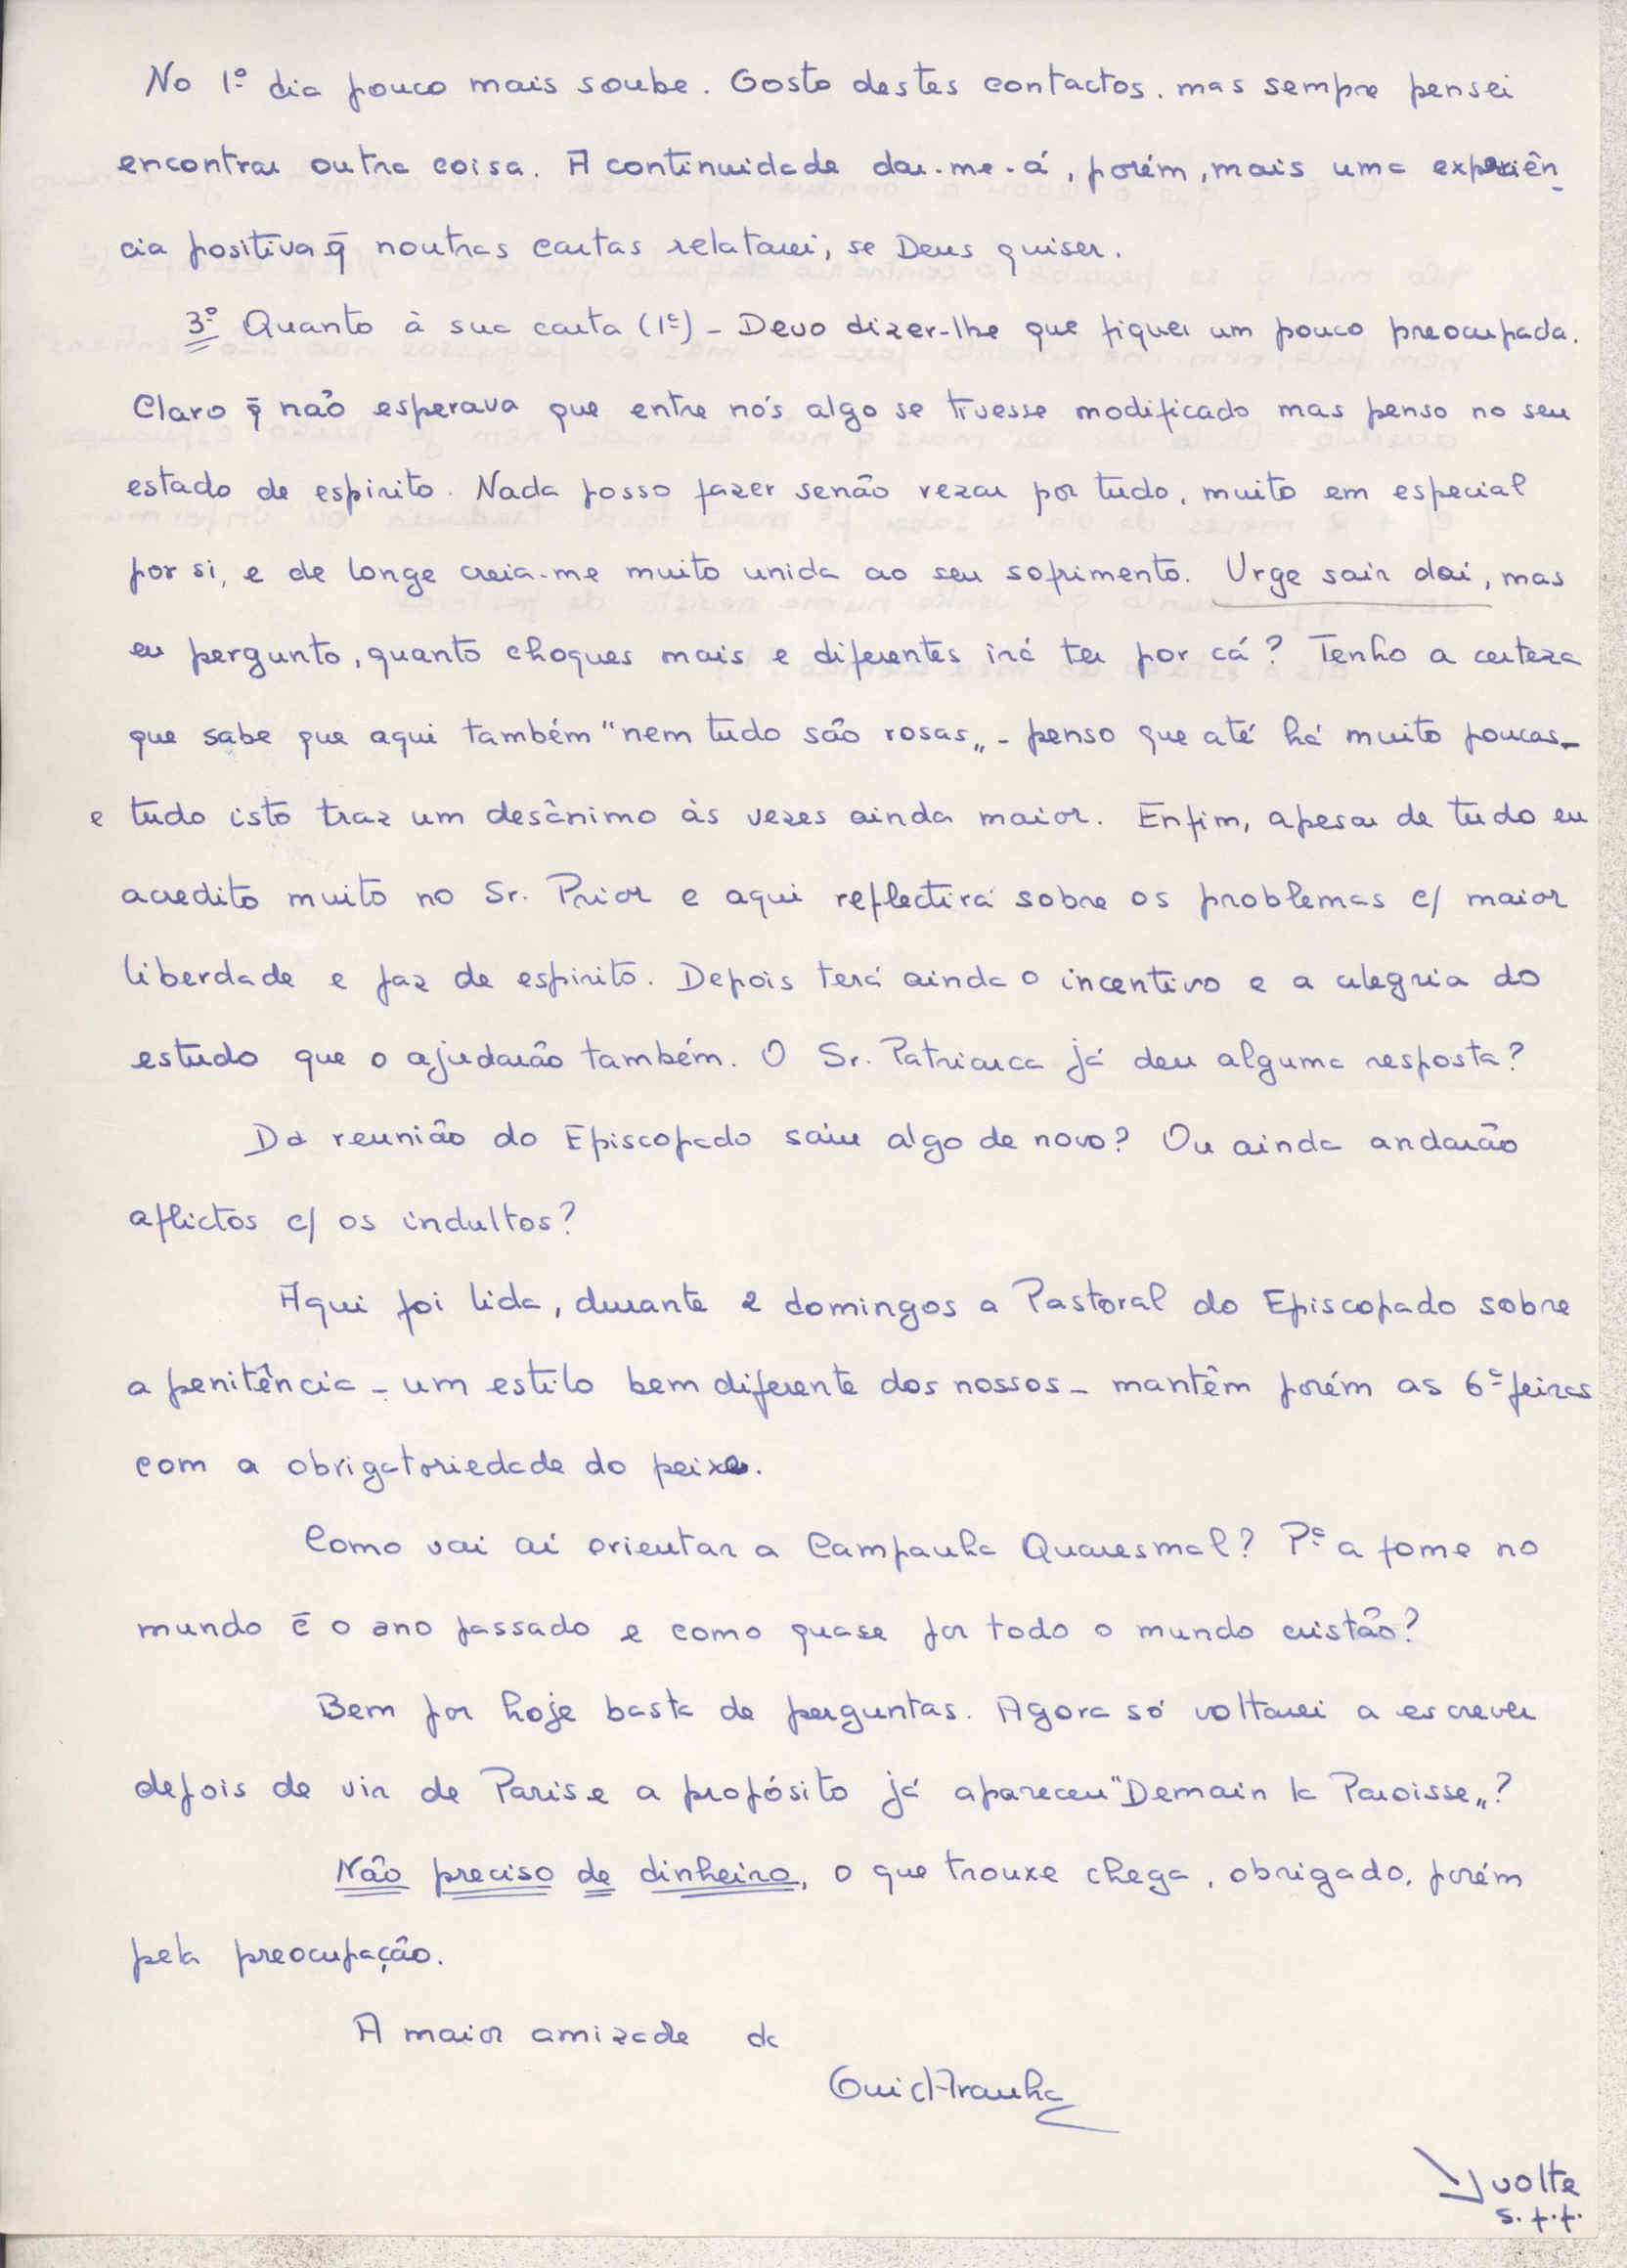 No 1º dia pouco mais soube. Gosto destes contactos, mas sempre pensei
encontrar outra coisa. A continuidade dar-me-á, porém, mais uma experiên-
cia positiva q̄ noutras cartas relatarei, se Deus quiser.
3º Quanto à sua carta (1ª) - Devo dizer-lhe que fiquei um pouco preocupada.
Claro q̄ não esperava que entre nós algo se tivesse modificado mas penso no seu
estado de espirito. Nada posso fazer senão rezar por tudo, muito em especial
por si, e de longe creia-me muito unida ao seu sofrimento. Urge sair daí, mas
eu pergunto, quanto choques mais e diferentes irá ter por cá? Tenho a certeza
que sabe que aqui também "nem tudo são rosas„ - penso que até há muito poucas -
e tudo isto traz um desânimo às vezes ainda maior. Enfim, apesar de tudo eu
acredito muito no Sr. Prior e aqui reflectirá sobre os problemas c/ maior
liberdade e paz de espirito. Depois terá ainda o incentivo e a alegria do
estudo que o ajudarão também. O Sr. Patriarca já deu alguma resposta?
Da reunião do Episcopado saiu algo de novo? Ou ainda andarão
aflictos c/ os indultos?
Aqui foi lida, durante 2 domingos a Pastoral do Episcopado sobre
a penitência - um estilo bem diferente dos nossos - mantêm porém as 6ª feiras
com a obrigatoriedade do peixe.
Como vai aí orientar a Campanha Quaresmal? Pª a fome no
mundo c̄ o ano passado e como quase por todo o mundo cristão?
Bem por hoje basta de perguntas. Agora só voltarei a escrever
depois de vir de Paris e a propósito já apareceu "Demain la Paroisse„?
Não preciso de dinheiro, o que trouxe chega, obrigado, porém
pela preocupação.
A maior amizade da
Guida Aranha
volte
s.f.f.